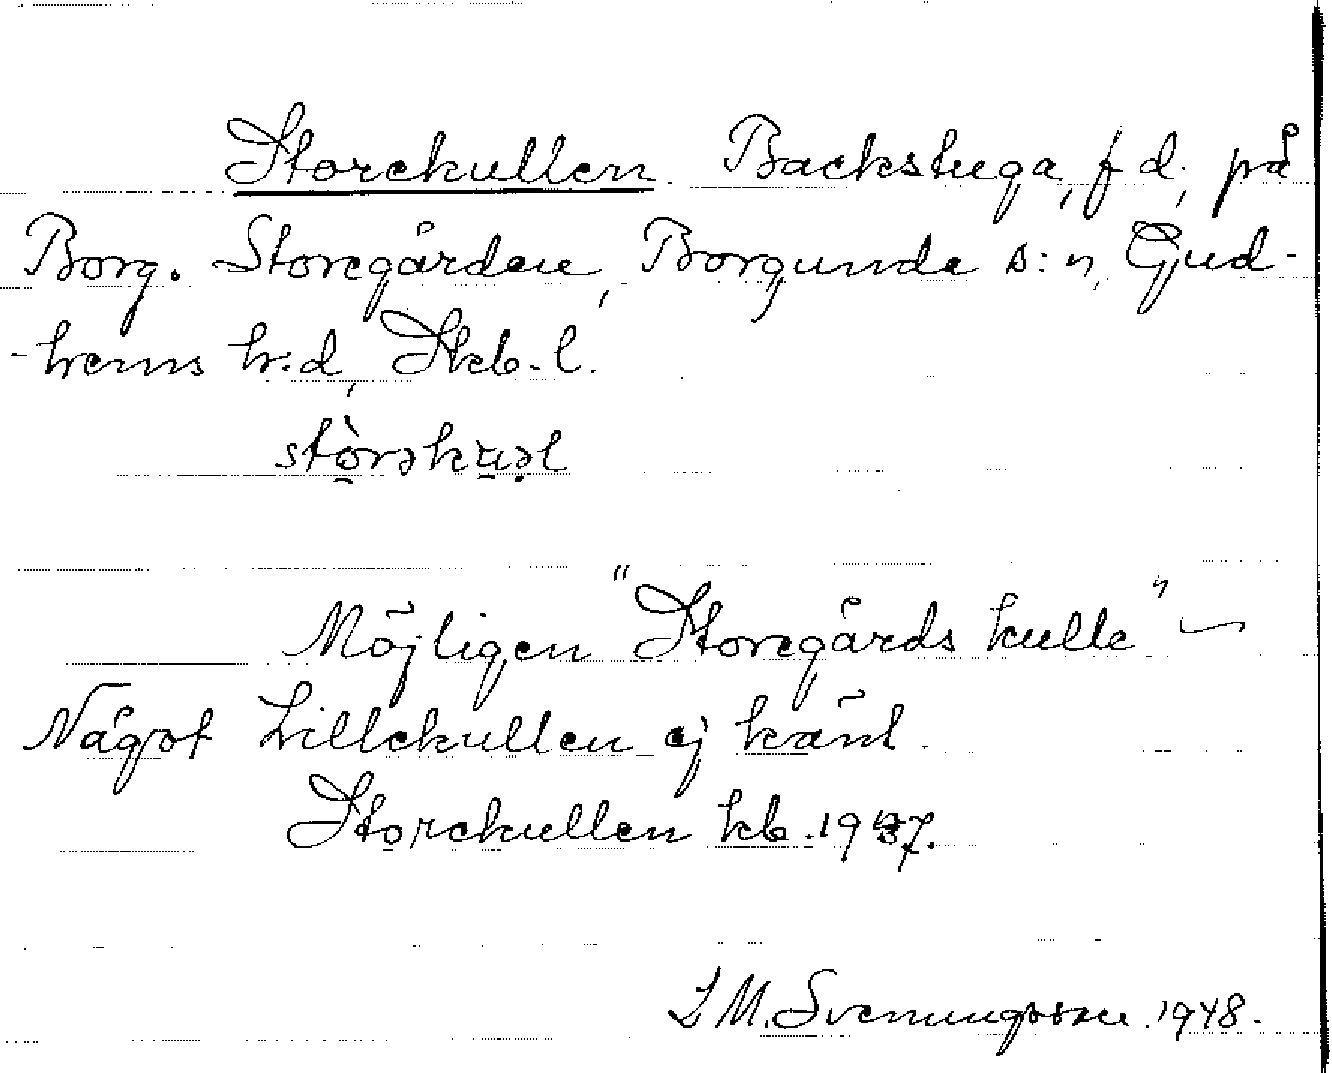 Storekullen Backstuga, f d, på
Borg. Storegården, Borgunda s:n, Gud-
-hems h:d, Skb.l.
Möjligen "Storegårds kulle"
Något Lillekullen ej känt.
Storekullen kb. 19
S M. Svenungsson 1948.